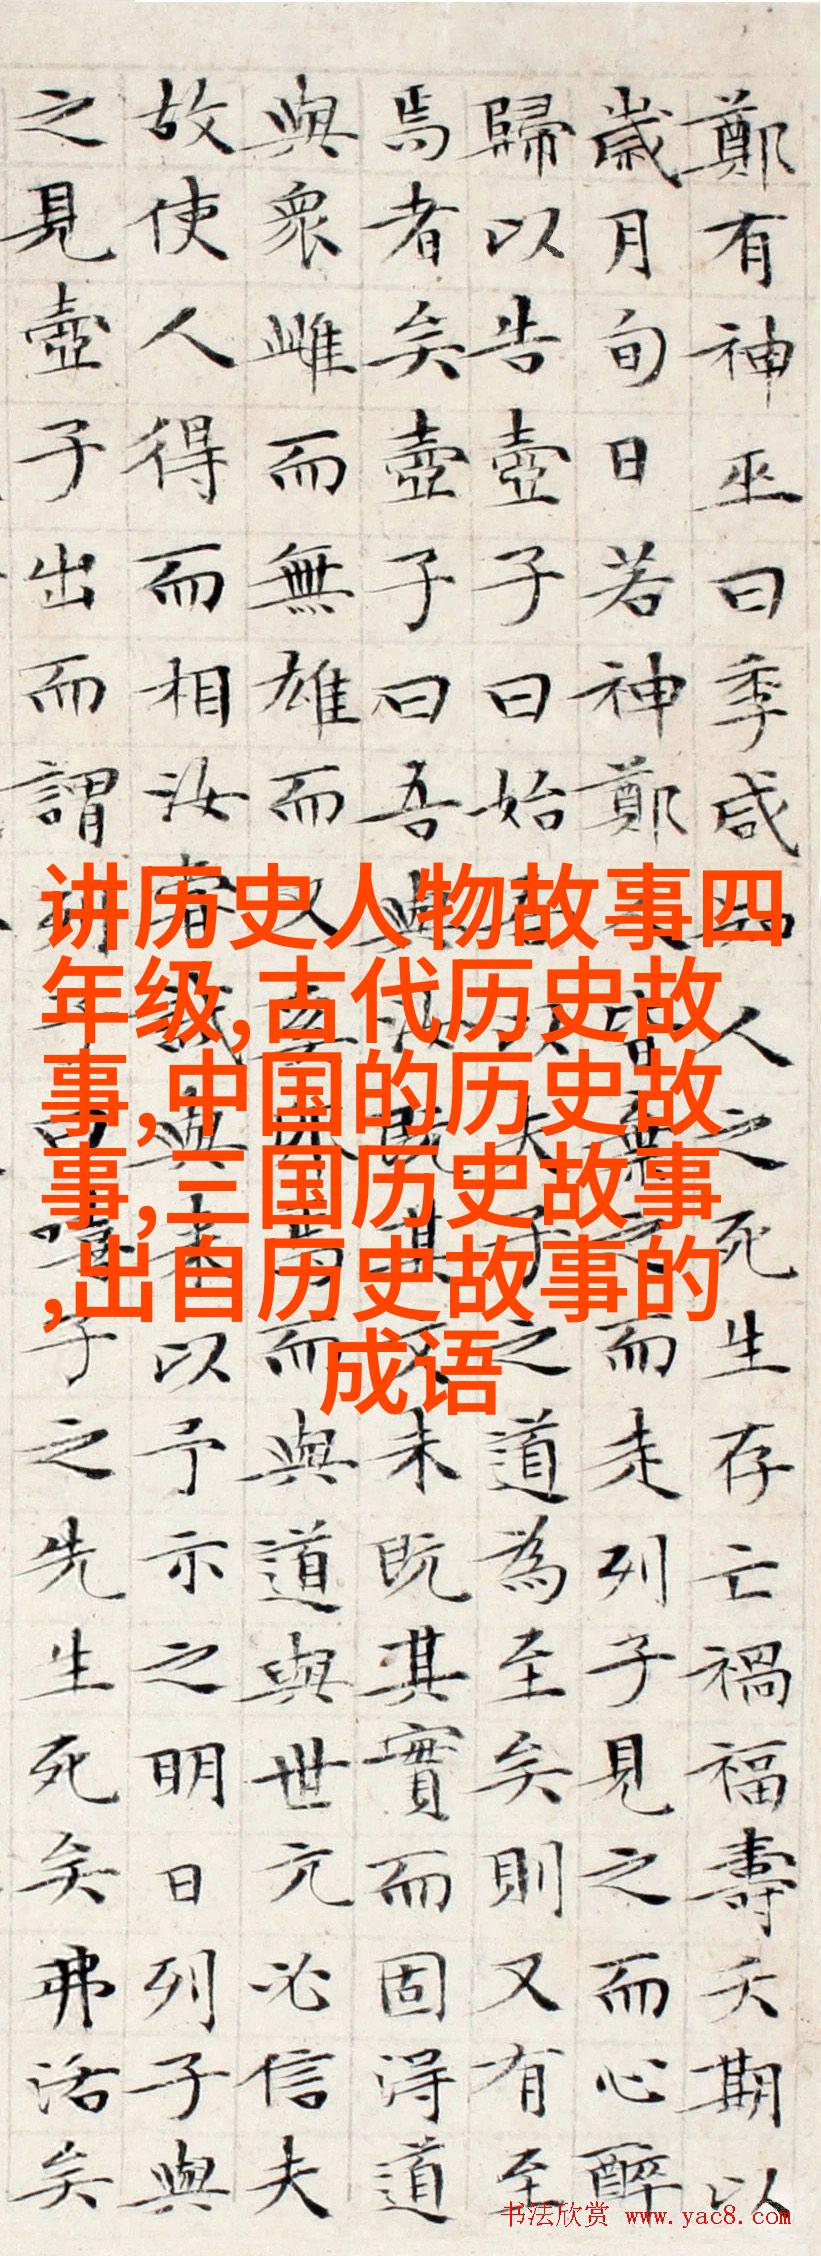 鄭有神巫曰季咸知人之死生存亡禍福壽夭期以
歲月旬日若神鄭人皆棄之而走列子見之而心醉
歸以告壺子曰始吾以夫子之道為至矣則又有至
焉者矣壺子曰吾與汝既其文未既其實而固得道
與衆雌而無雄而又奚卵焉而與道與世亢必信夫
故使人得而相汝嘗試與來以予示之明日列子與
之見壺子出而謂列子曰嘻子之先生死矣弗活矣
讲历史人物故事四
年级,古代历史故
事,中国的历史故
事,三国历史故事
,出自历史故事的
成语
书法欣赏 www.yac8.com